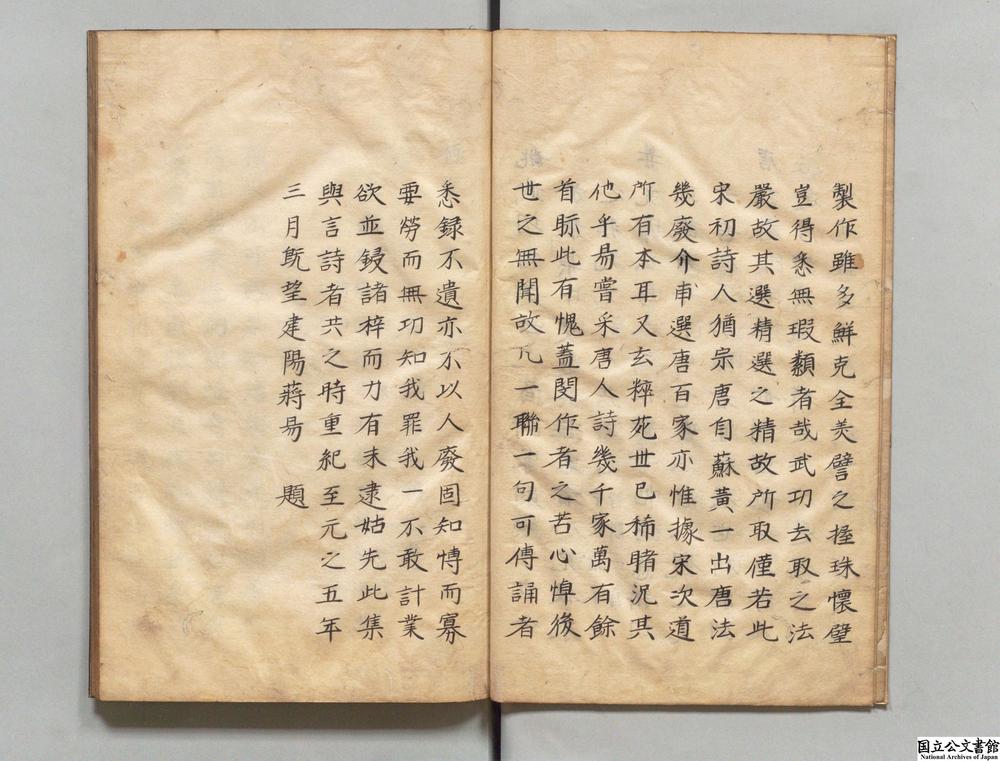 製作雖多鮮克全美譬之握珠懷璧
豈得悉無瑕纇者哉武功去取之法
嚴故其選精選之精故所取僅若此
宋初詩人猶宗唐自蘇黃一出唐法
幾廢介甫選唐百家亦惟據宋次道
所有本耳又玄粹苑世已稀睹況其
他乎昜嘗采唐人詩幾千家萬有餘
首眎此有愧蓋閔作者之苦心悼後
世之無聞故凢一聯一句可傳誦者
悉録不遺亦不以人廢固知博而寡
要勞而無功知我罪我一不敢計業
欲並鋟諸梓而力有未逮姑先此集
與言詩者共之時重紀至元之五年
三月旣望建陽蔣昜 題
国立公文書館
National Archives of Japan